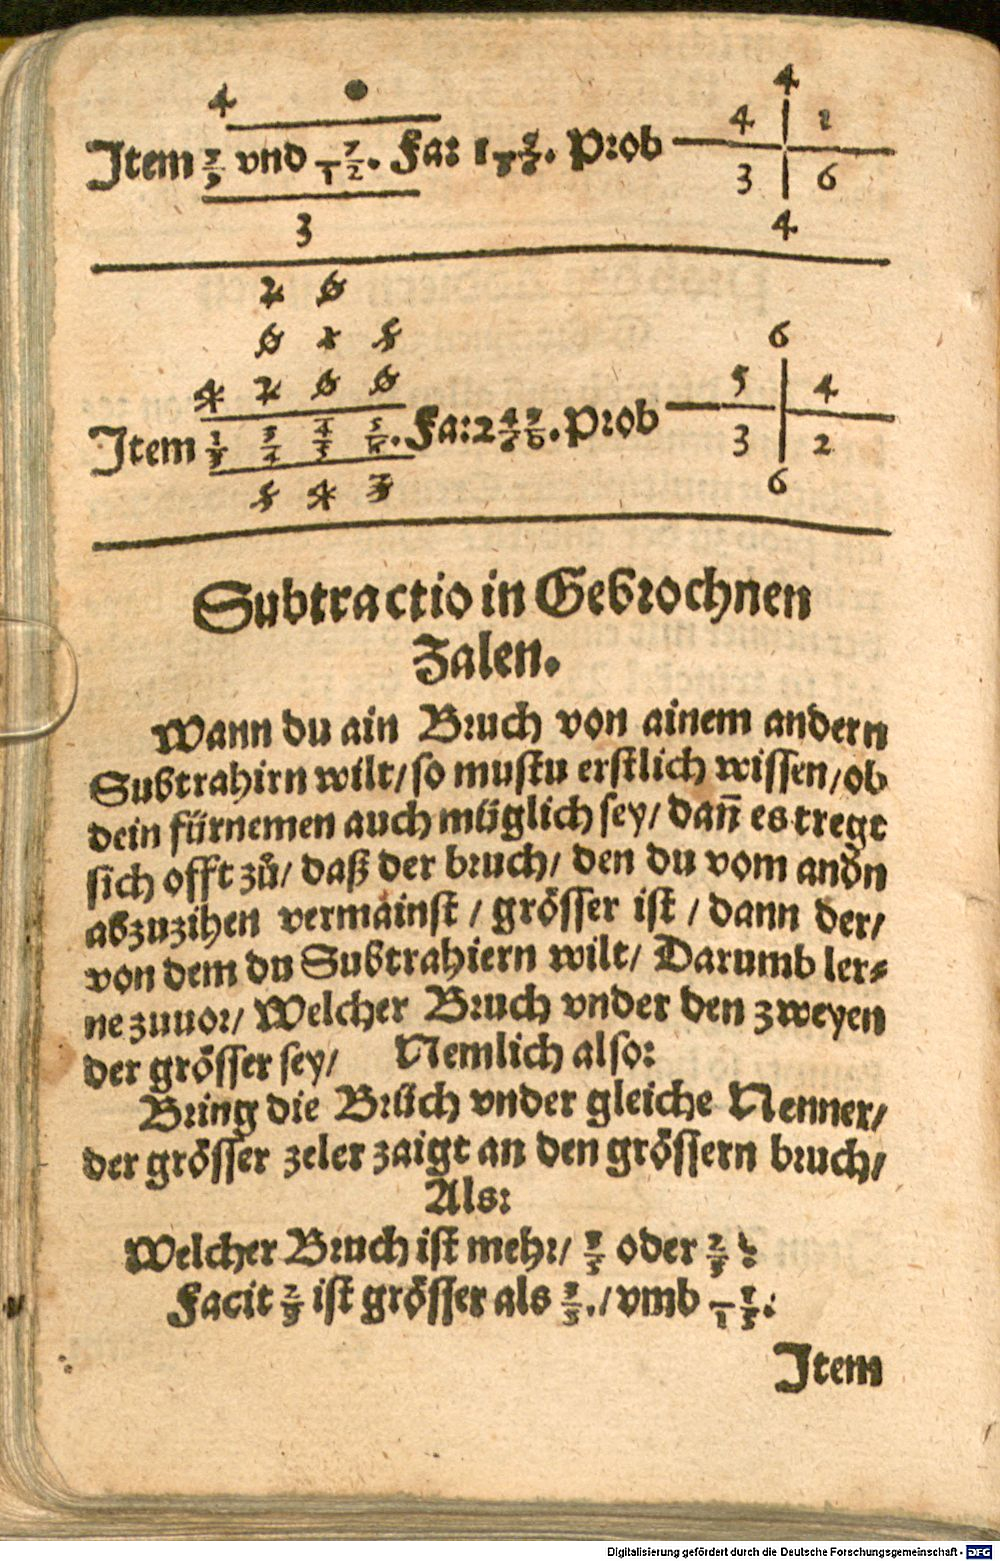 4 ●
Item 7/9 vnd 7/12. Fa: 1 13/36. Prob
4
4 1
3 6
4
3
2 0
0 1 5
4 2 0 0
Item 1/3 3/4 4/5 5/6. Fa: 2 43/60. Prob
5 4 3
6
5 4
3 2
6
Subtractio in Gebrochnen
Zalen.
Wann du ain Bruch von ainem andern
Subtrahirn wilt/ so mustu erstlich wissen/ ob
dein fürnemen auch müglich sey/ dañ es tregt
sich offt zů/ daß der bruch/ den du vom andn
abzuzihen vermainst / grösser ist / dann der/
von dem du Subtrahiern wilt/ Darumb ler⸗
ne zuuor/ Welcher Bruch vnder den zweyen
der grösser sey/ Nemlich also:
Bring die Brüch vnder gleiche Nenner/
der grösser zeler zaigt an den grössern bruch/
Als:
Welcher Bruch ist mehr/ 3/5 oder 2/3 ?
Facit 2/3 ist grösser als 3/5./ vmb 1/15:
Item
Digitalisierung gefördert durch die Deutsche Forschungsgemeinschaft - DFG